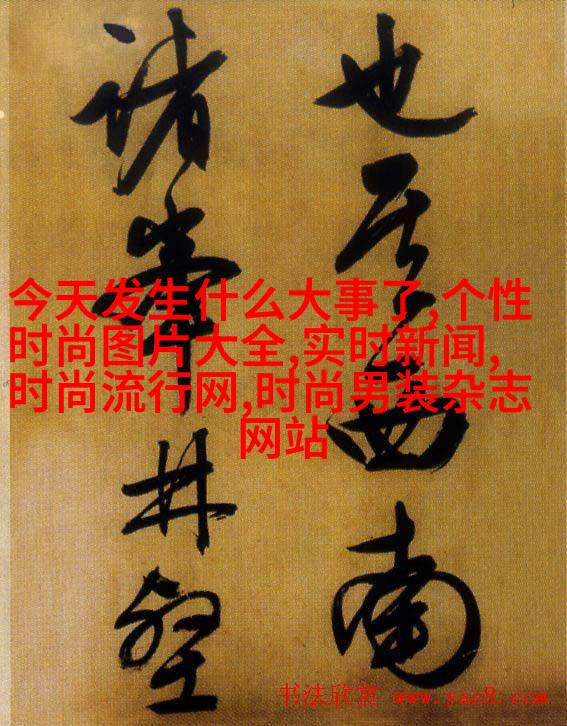 也其西南
諸峯林壑
今天发生什么大事了,个性
时尚图片大全,实时新闻,
时尚流行网,时尚男装杂志
网站
书法欣赏 www.yac8.com